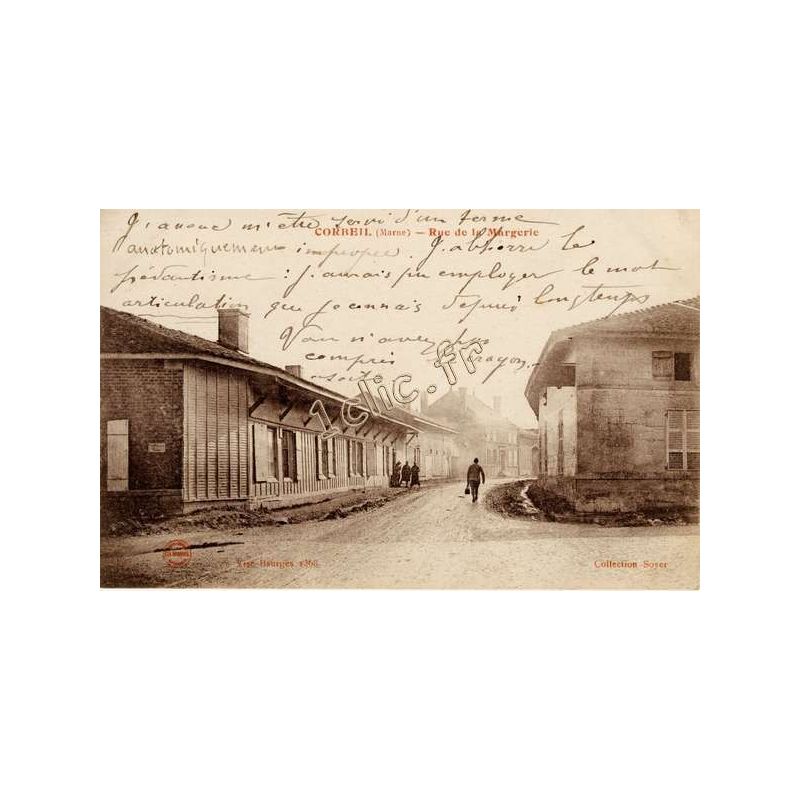 J'avoue m'être servi d'un terme
CORBEIL (Marne) — Rue de la Margerie
anatomiquement impropre. J'abhorre le
pédantisme : J'aurais pu employer le mot
articulation que je connais depuis longtemps
Vous n'avez pas
compris le crayon
1clic.fr
Collection Soyer